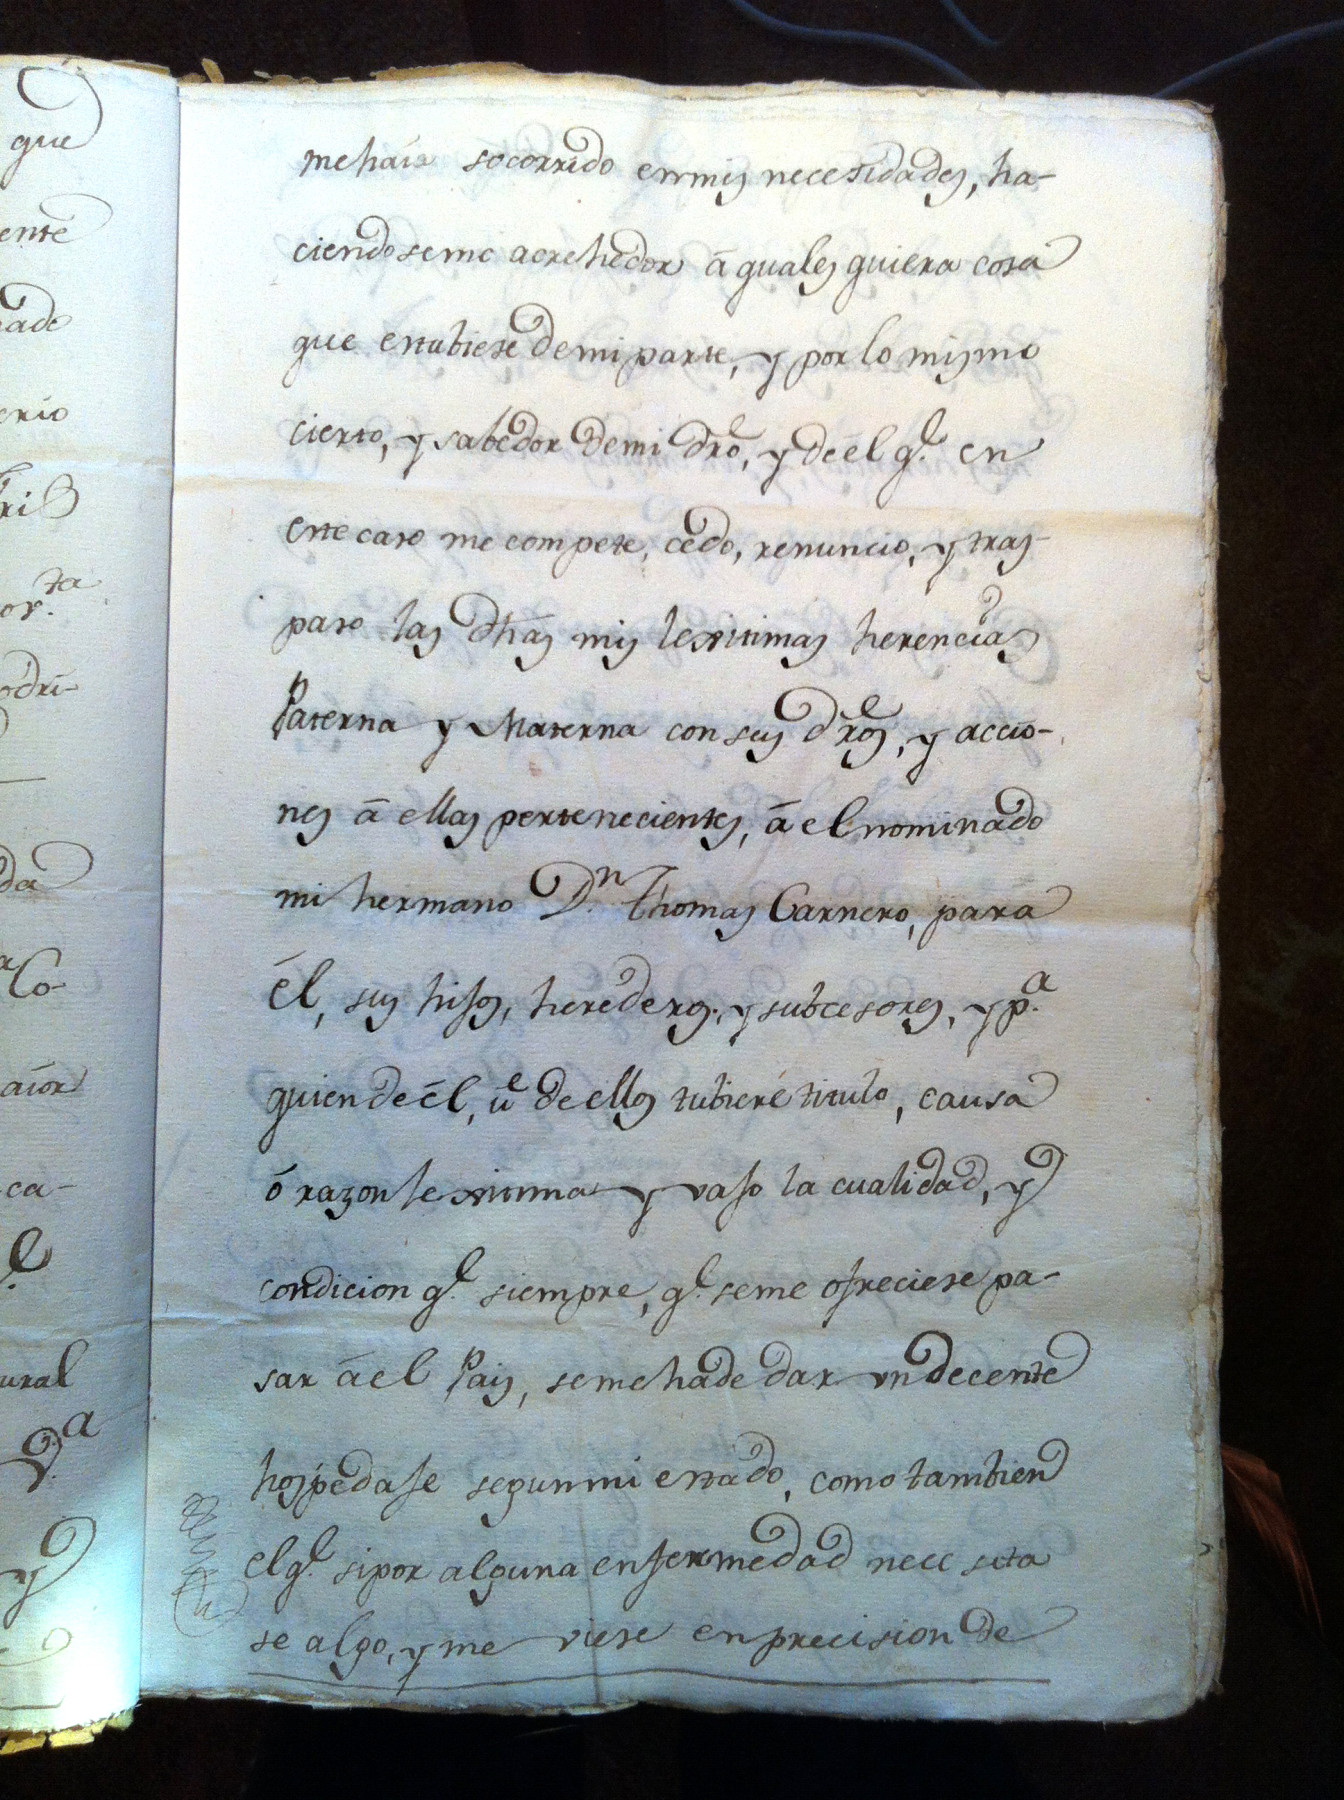 me haia socorrido en mis necesidades, ha-
ciendoseme acrehedor â quales quiera cosa
que estubiese de mi parte, y por lo mismo
cierto, y sabedor de mi dro̅, y de él q.e en
este caso me compete, cedo, renuncio, y tras-
paso las dhas mis lexitimas herencias
Paterna y Materna con sus dros̅, y accio-
nes â ellas pertenecientes, â el nominado
mi hermano D.n Thomas Carnero, para
él, sus hijos, herederos, y subcesores, y p.a
quien de él, u de ellos tubiere titulo, causa
ó razon lexitima y vajo la cualidad, y
condicion q.e siempre, q.e seme ofreciese pa-
sar â el Pais, seme ha de dar un decente
hospedaje segun mi estado, como tambien
el q.e si por alguna enfermedad nece sita
se algo, y me viese en precision de
que
ente
ado
erio
or.ta
odri-
da
Co-
aior
ca-
ural
y